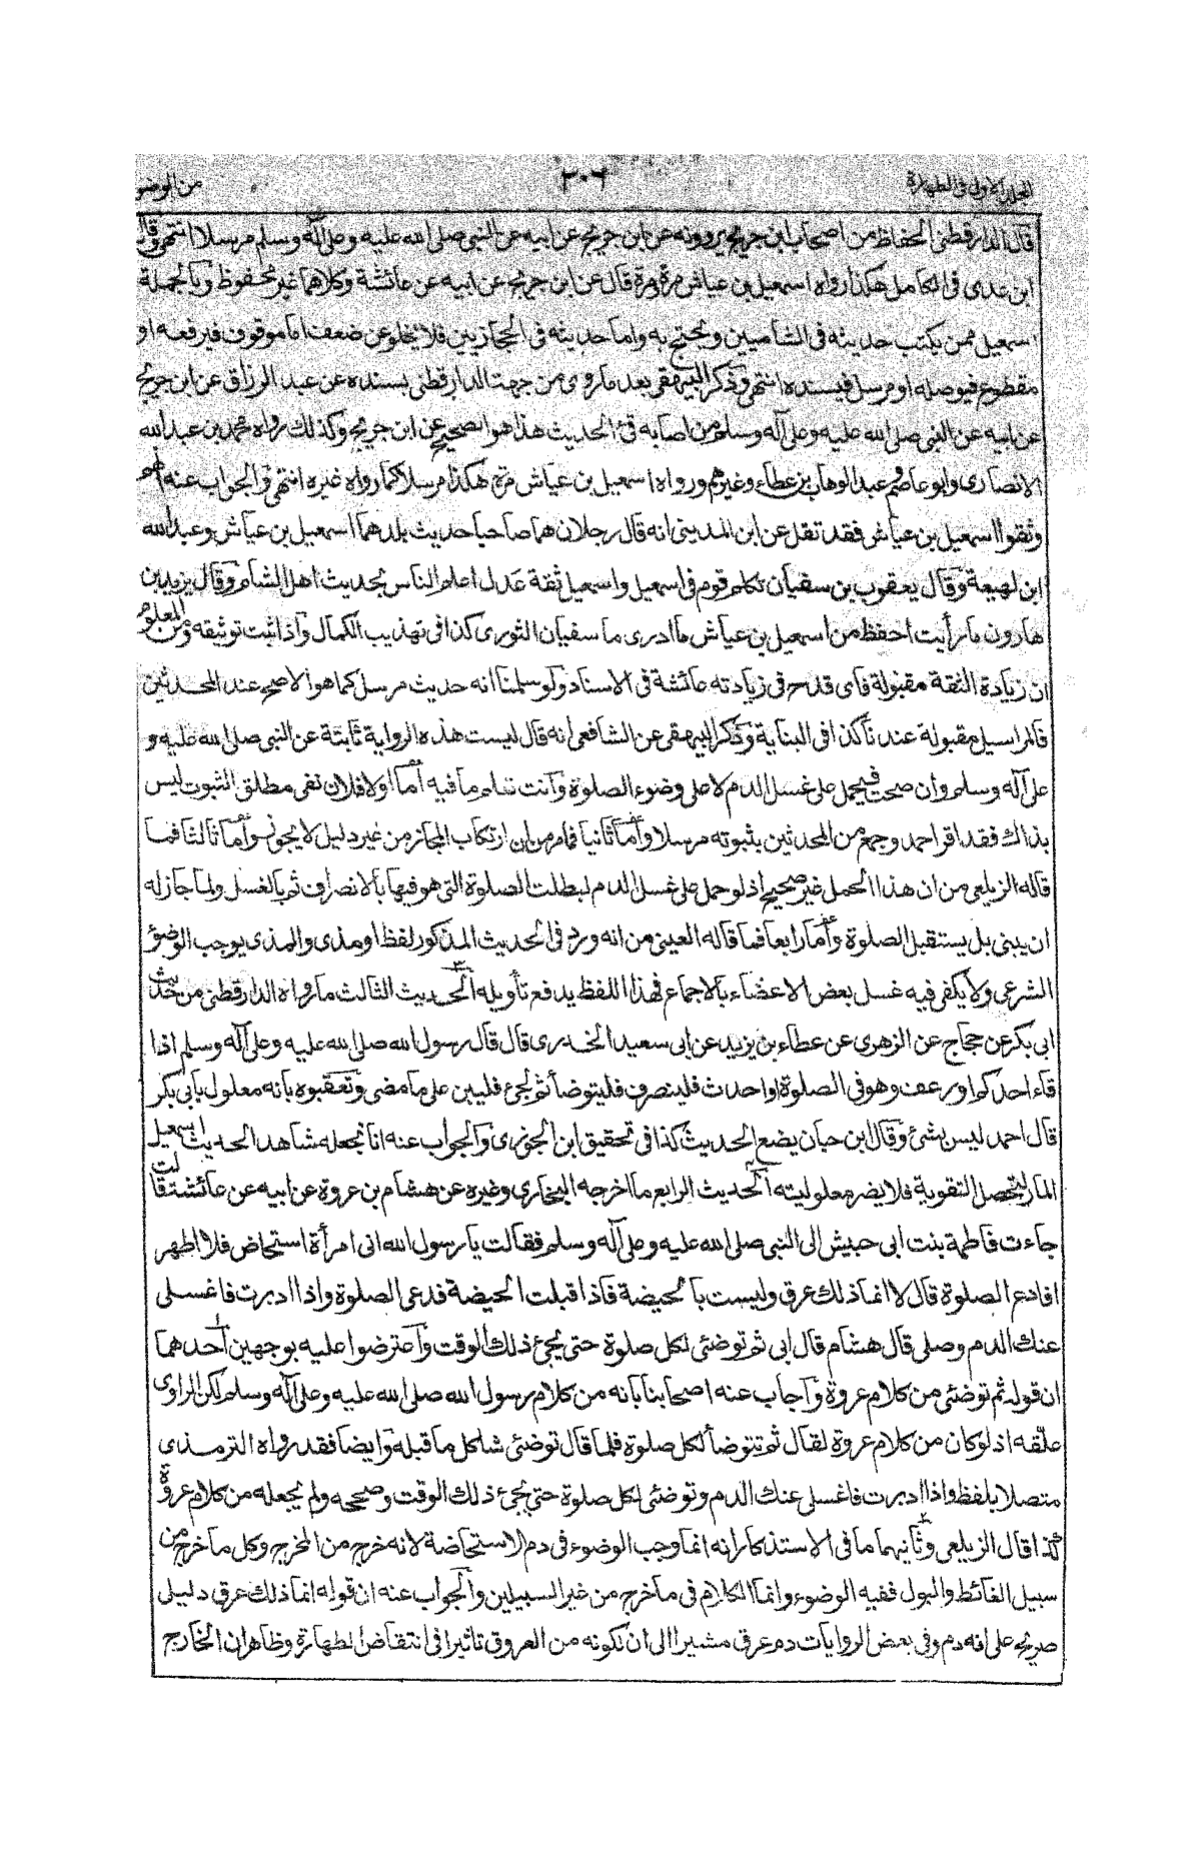 المجلد الاولى فى الطهارة ٢٠٦ من الوضو
قال الدارقطنى الحفاظ من اصحاب ابن جريج يروونه عن ابن جريج عن ابيه عن النبى صلى الله عليه وعلى آله وسلم مرسلا انتهى وقال
ابن عدى فى الكامل هكذا رواه اسمعيل بن عياش مرة ومرة قال عن ابن جريج عن ابيه عن عائشة وكلاهما غير محفوظ وبالجملة
اسمعيل ممن يكتب حديثه فى الشاميين ويحتج به واما حديثه فى الحجازيين فلا يخلو عن ضعف اما موقوف فيرفعه او
مقطوع فيوصله او مرسل فيسنده انتهى وذكر البيهقى بعد ما روى من جهة الدارقطنى بسنده عن عبد الرزاق عن ابن جريج
عن ابيه عن النبى صلى الله عليه وعلى آله وسلم من اصابه قئ الحديث هذا هو الصحيح عن ابن جريج وكذلك رواه محمد بن عبد الله
الانصارى وابو عاصم وعبد الوهاب بن عطاء وغيرهم ورواه اسمعيل بن عياش مرة هكذا مرسلا كما رواه غيره انتهى والجواب عنه انهم
وثقوا اسمعيل بن عياش فقد نقل عن ابن المدينى انه قال رجلان هما صاحبا حديث بلدهما اسمعيل بن عياش وعبد الله
ابن لهيعة وقال يعقوب بن سفيان تكلم قوم فى اسمعيل واسمعيل ثقة عدل اعلم الناس بحديث اهل الشام وقال يزيد بن
هارون ما رأيت احفظ من اسمعيل بن عياش ما ادرى ما سفيان الثورى كذا فى تهذيب الكمال واذا ثبت توثيقه ومن المعلوم
ان زيادة الثقة مقبولة فاى قدح فى زيادته عائشة فى الاسناد ولو سلمنا انه حديث مرسل كما هو الاصح عند المحدثين
فالمراسيل مقبولة عندنا كذا فى البناية وذكر البيهقى عن الشافعى انه قال ليست هذه الرواية ثابتة عن النبى صلى الله عليه و
على آله وسلم وان صحت فيحمل على غسل الدم لا على وضوء الصلوة وانت تعلم ما فيه اما اولا فلان نفى مطلق الثبوت ليس
بذاك فقد اقر احمد وجمع من المحدثين بثبوته مرسلا واما ثانيا فما مر من ان ارتكاب المجاز من غير دليل لا يجوز واما ثالثا فما
قاله الزيلعى من ان هذا الحمل غير صحيح اذ لو حمل على غسل الدم لبطلت الصلوة التى هو فيها بالانصراف ثم بالغسل ولما جاز له
ان يبنى بل يستقبل الصلوة واما رابعا فما قاله العينى من انه ورد فى الحديث المذكور لفظ او مذى والمذى يوجب الوضوء
الشرعى ولا يكفى فيه غسل بعض الاعضاء بالاجماع فهذا اللفظ يدفع تأويله الحديث الثالث ما رواه الدارقطنى من حديث
ابى بكر عن حجاج عن الزهرى عن عطاء بن يزيد عن ابى سعيد الخدرى قال قال رسول الله صلى الله عليه وعلى آله وسلم اذا
قاء احدكم او رعف وهو فى الصلوة او احدث فلينصرف فليتوضأ ثم ليجئ فليبن على ما مضى وتعقبوه بانه معلول بابى بكر
قال احمد ليس بشئ وقال ابن حبان يضع الحديث كذا فى تحقيق ابن الجوزى والجواب عنه انا نجعله شاهد الحديث اسمعيل
المار ليحصل التقوية فلا يضر معلوليته الحديث الرابع ما اخرجه البخارى وغيره عن هشام بن عروة عن ابيه عن عائشة قالت
جاءت فاطمة بنت ابى حبيش الى النبى صلى الله عليه وعلى آله وسلم فقالت يا رسول الله انى امرأة استحاض فلا اطهر
افادع الصلوة قال لا انما ذلك عرق وليست بالحيضة فاذا اقبلت الحيضة فدعى الصلوة واذا ادبرت فاغسلى
عنك الدم وصلى قال هشام قال ابى ثم توضئى لكل صلوة حتى يجئ ذلك الوقت واعترضوا عليه بوجهين احدهما
ان قوله ثم توضئى من كلام عروة واجاب عنه اصحابنا بانه من كلام رسول الله صلى الله عليه وعلى آله وسلم لكن الراوى
علقه اذ لو كان من كلام عروة لقال ثم تتوضأ لكل صلوة فلما قال توضئى شاكل ما قبله وايضا فقد رواه الترمذى
متصلا بلفظ واذا ادبرت فاغسلى عنك الدم وتوضئى لكل صلوة حتى يجئ ذلك الوقت وصححه ولم يجعله من كلام عروة
كذا قال الزيلعى وثانيهما ما فى الاستذكار انه انما وجب الوضوء فى دم الاستحاضة لانه خرج من المخرج وكل ما خرج من
سبيل الغائط والبول ففيه الوضوء وانما الكلام فى ما خرج من غير السبيلين والجواب عنه ان قوله انما ذلك عرق دليلى
صريح على انه دم وفى بعض الروايات دم عرق مشيرا الى ان لكونه من العروق تاثيرا فى انتقاض الطهارة وظاهر ان الخارج